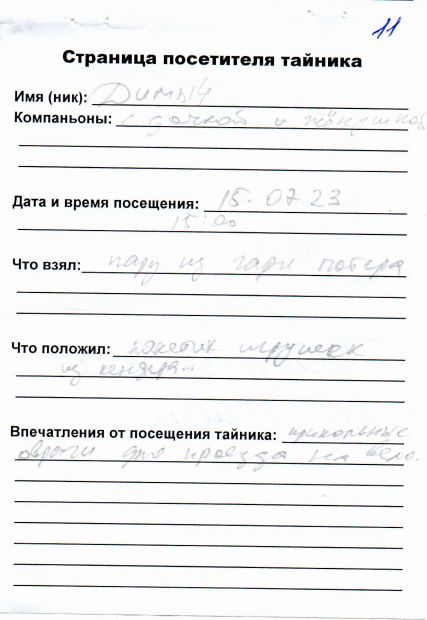 11
Страница посетителя тайника
Имя (ник): Димыч
Компаньоны: с дочкой и жёнушкой
Дата и время посещения: 15.07.23
15:00
Что взял: пару из гари потера
Что положил: пакетик игрушек
из киндера..
Впечатления от посещения тайника: прикольные
для проезда на вело.